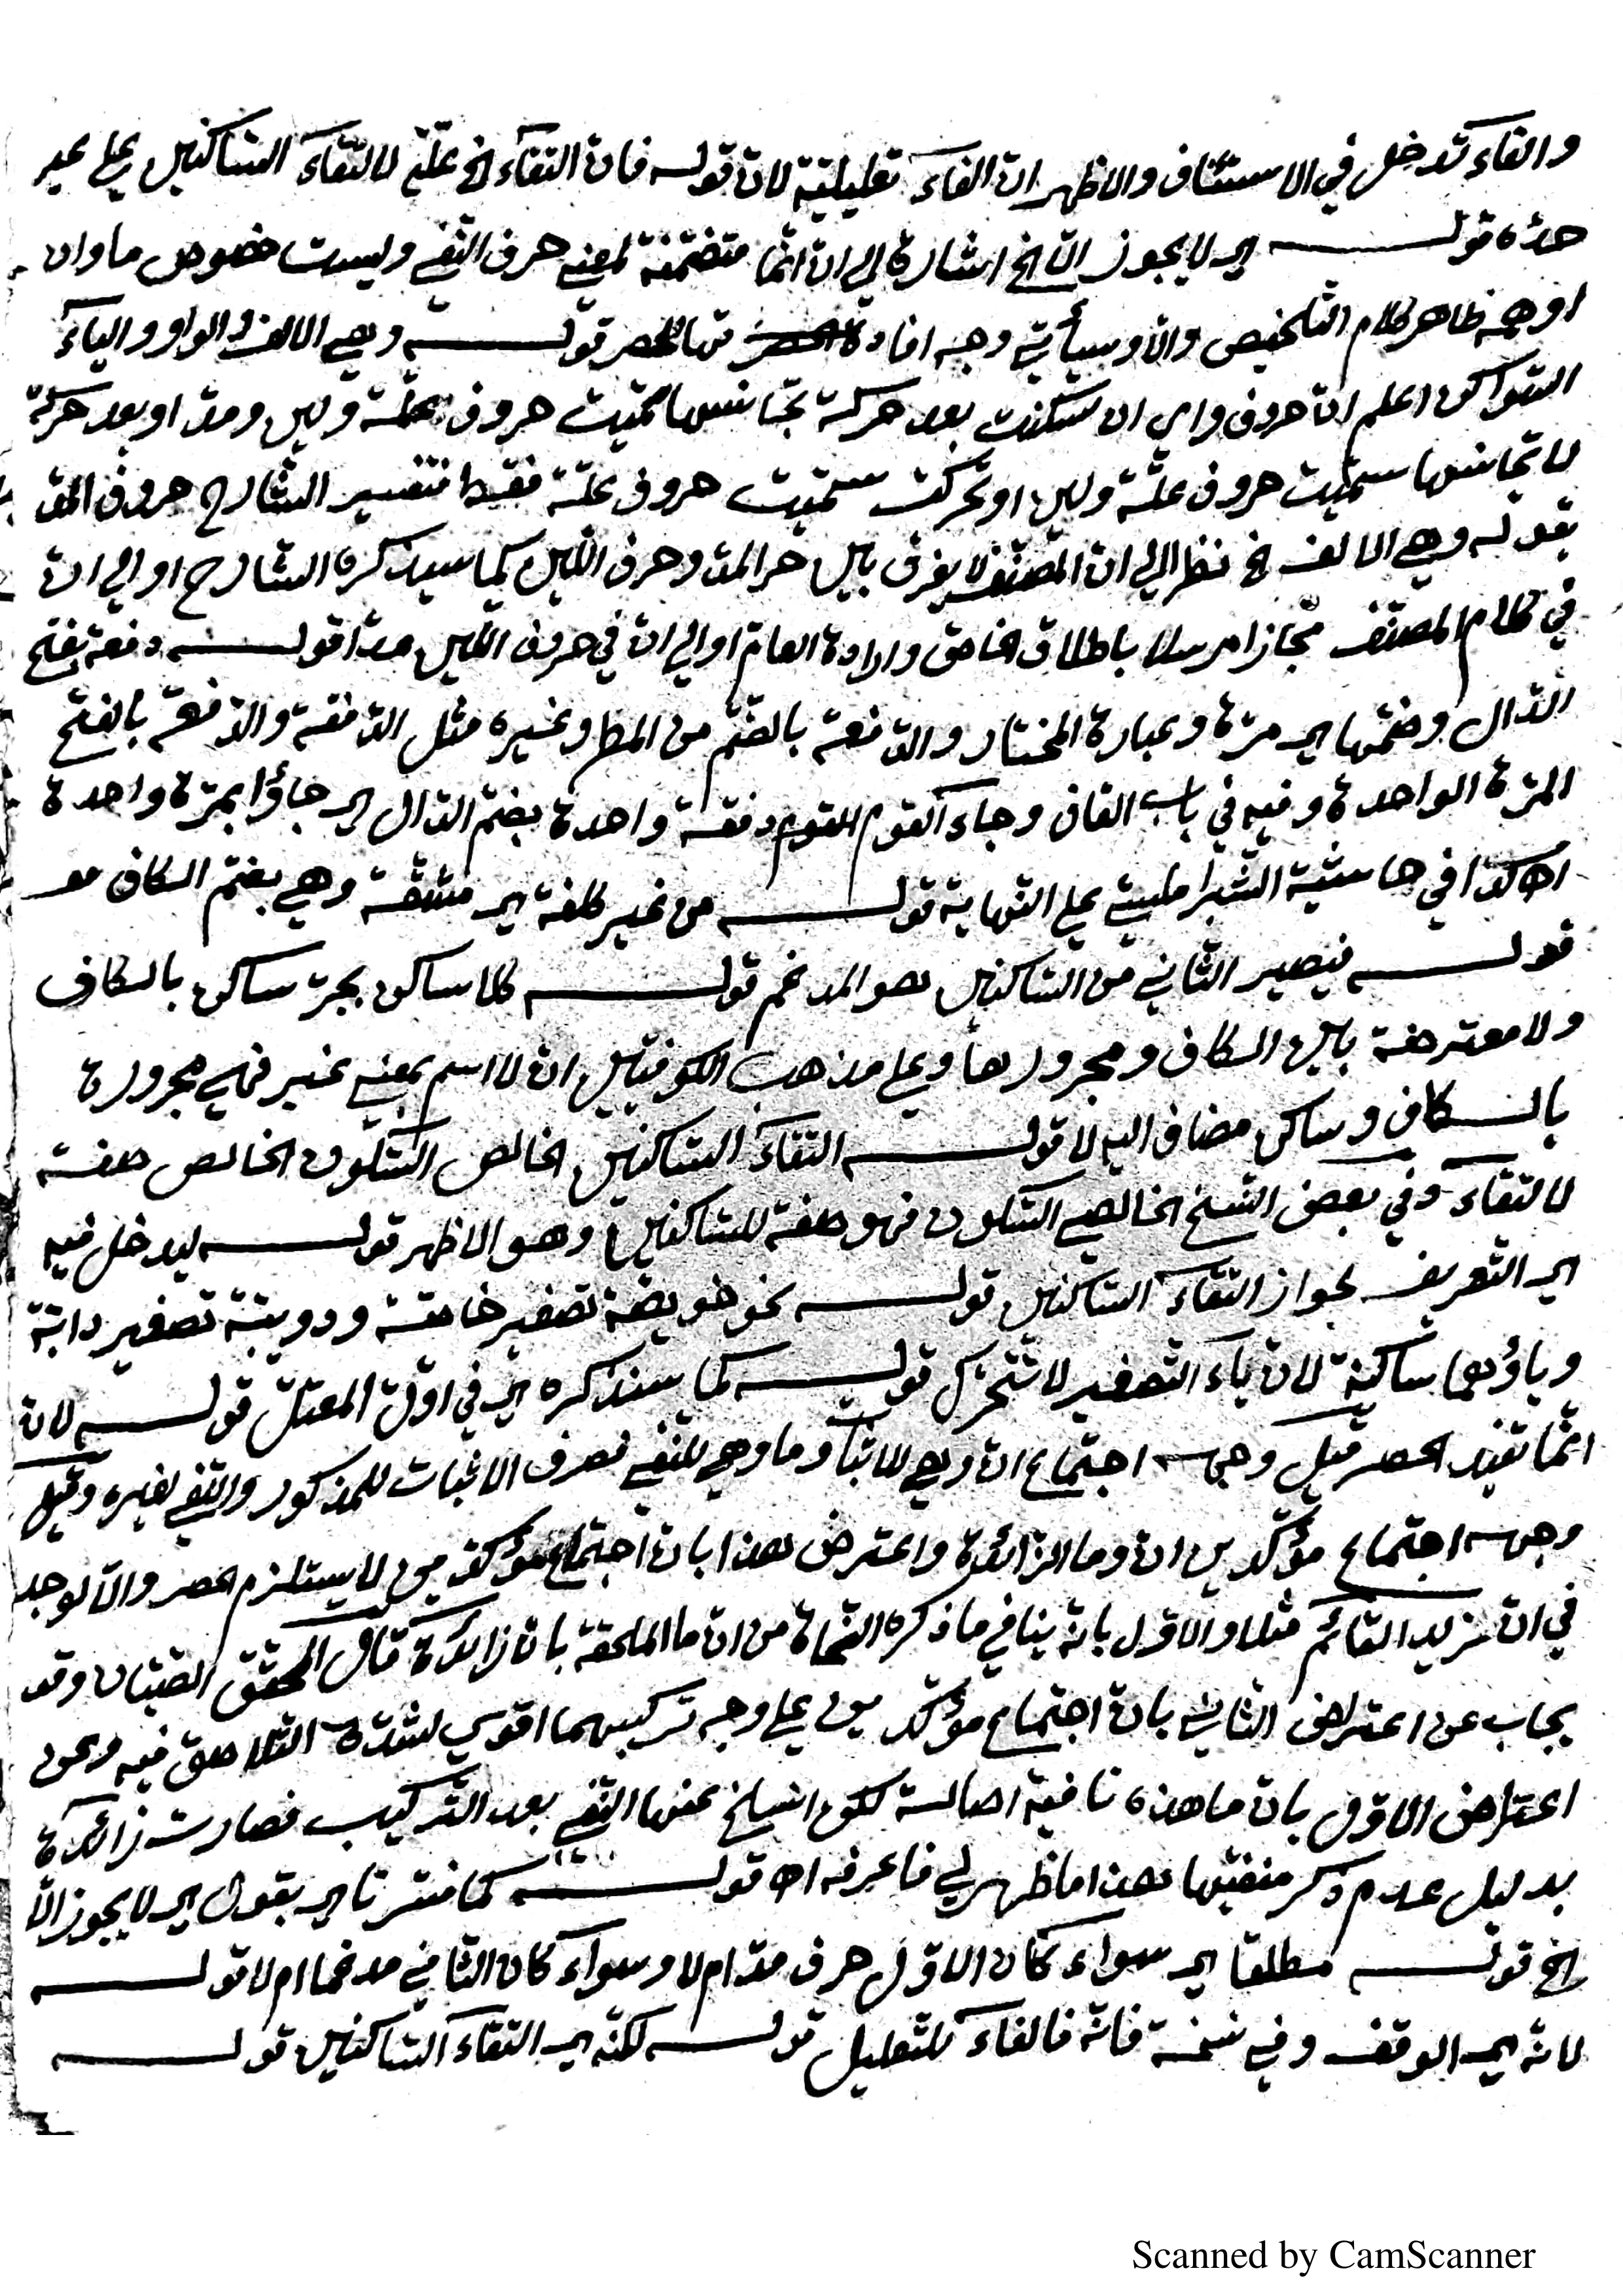 والفاء تدخل في الاستئناف والاظهر ان الفاء تعليلية لان قوله فان التقاء الخ علة لالتقاء الساكنين على غير
حده قوله اي لا يجوز الا الخ اشارة الى ان انما متضمنة لمعنى حرف النفي وليست خصوص ما وان
اوهمه ظاهر كلام التلخيص والا وسيأتي وجه افادة الحصر قوله وهي الالف والواو والياء
السواكن اعلم ان حروف واي ان سكنت بعد حركة تجانسها سميت حروف علة ولين ومد او بعد حركة
لا تجانسها سميت حروف علة ولين او تحركت سميت حروف علة فقط فتفسير الشارح حروف المد
بقوله وهي الالف الخ نظرا الى ان المصنف لا يفرق بين حر المد وحرف اللين كما سيذكره الشارح او الى ان
في كلام المصنف مجازا مرسلا باطلاق الخاص وارادة العام او الى ان في حروف اللين مدا قوله دفعة بفتح
الدال وضمها اي مرة وعبارة المختار والدفعة بالضم من المطر وغيره مثل الدفقة والدفعة بالفتح
المرة الواحدة وفيه في باب القاف وجاء القوم دفقة واحدة بضم الدال اي جاؤا بمرة واحدة
اه كذا في حاشية الشبراملسي على النهاية قوله من غير كلفة اي مشقة وهي بضم الكاف
قوله فيصير الثاني من الساكنين هو المدغم قوله كلا ساكن بجر ساكن بالكاف
ولا معترضة بين الكاف ومجرورها وعلى مذهب الكوفيين ان لا اسم بمعنى غير فهي مجرورة
بالكاف وساكن مضاف اليه لا قوله التقاء الساكنين الخالص السكون الخالص صفة
لالتقاء وفي بعض النسخ الخالصي السكون فهو صفة للساكنين وهو الاظهر قوله ليدخل فيه
اي التعريف لجواز التقاء الساكنين قوله نحو خويصة تصغير خاصة ودويبة تصغير دابة
وياؤهما ساكنة لان ياء التصغير لا تتحرك قوله كما سنذكره اي في اول المعتل قوله لان
انما تفيد الحصر قيل وجهه اجتماع ان وهي للاثبات وما وهي للنفي فصرف الاثبات للمذكور والنفي لغيره وقيل
وجهه اجتماع مؤكدين ان وما الزائدة واعترض هذا بان اجتماع مؤكدين لا يستلزم الحصر والا لوجد
في ان زيد القائم مثلا والاول بانه ينافي ما ذكره النحاة من ان ما الملحقة بان زائدة قال المحقق الصبان وقد
يجاب عن اعتراض الثاني بان اجتماع مؤكدين على وجه تركيبهما اقوى لشدة التلاصق فيه وعن
اعتراض الاول بان ما هذه نافية اصالة لكن انسلخ عنها النفي بعد التركيب فصارت زائدة
بدليل عدم ذكر منفيها هذا ما ظهر لي فاعرفه اه قوله كما فسرنا اي بقول اي لا يجوز الا
الخ قوله مطلقا اي سواء كان الاول حرف مد ام لا وسواء كان الثاني مدغما ام لا قوله
لانه اي الوقف وفي نسخة فانه فالفاء للتعليل قوله لكنه اي التقاء الساكنين قوله
Scanned by CamScanner